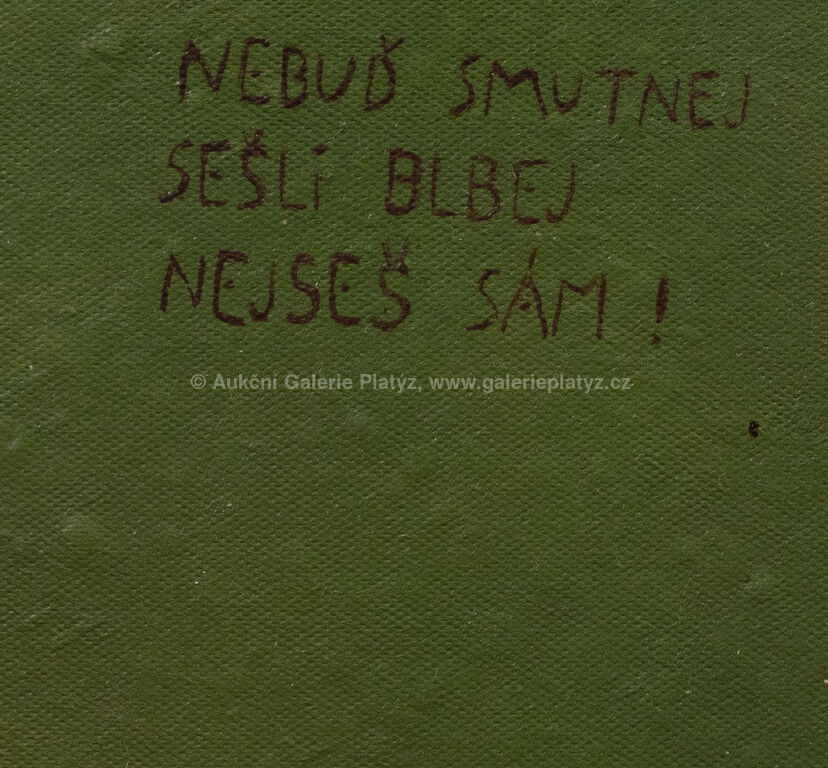 NEBUĎ SMUTNEJ
SEŠLi BLBEJ
NEJSEŠ SÁM !
© Aukční Galerie Platýz, www.galerieplatyz.cz